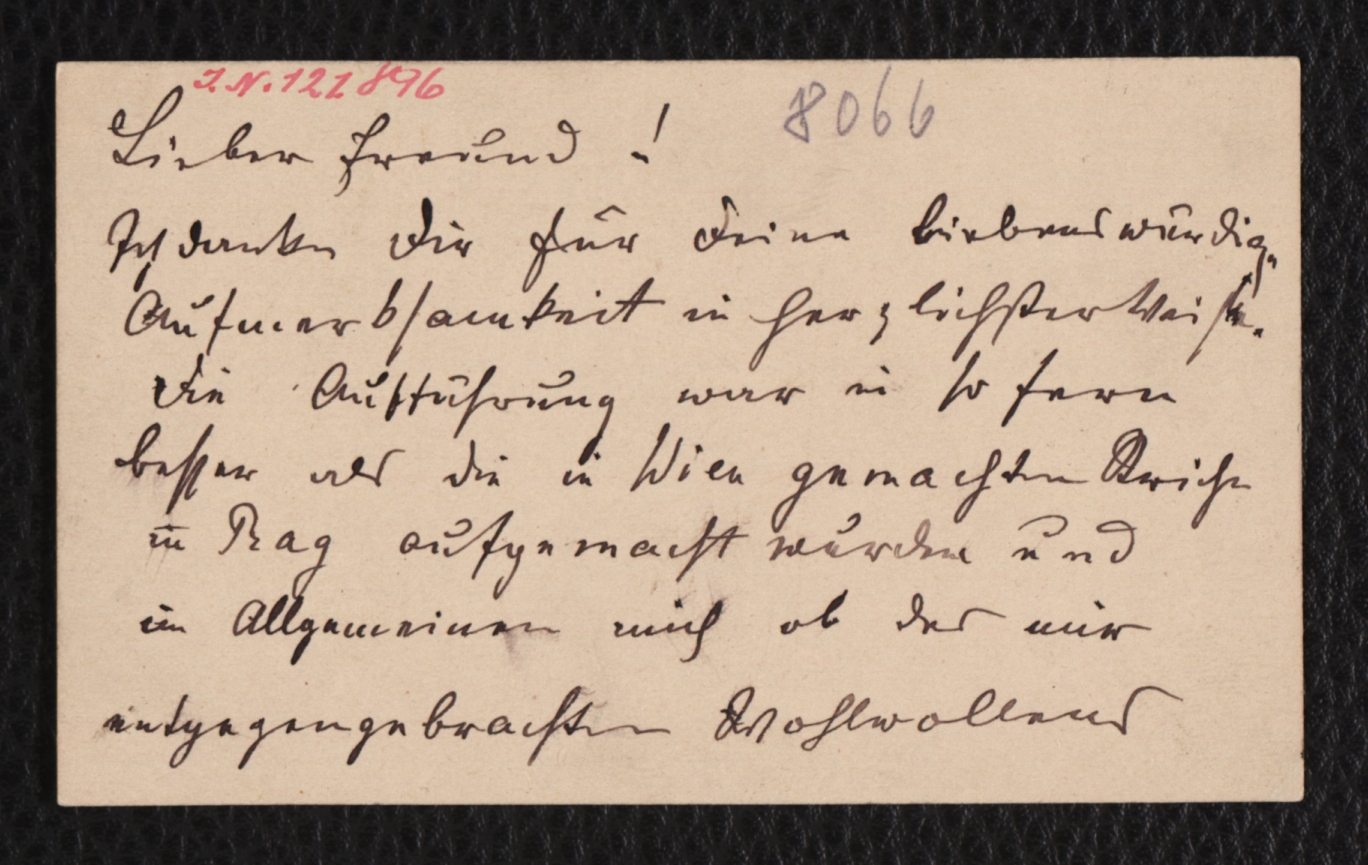 I.N. 121896
8066
Lieber Freund!
Ich danke Dir für Deine liebenswürdige
Aufmerksamkeit in herzlichster Weise.
Die Aufführung war in so fern
besser als die in Wien gemachten Striche
in Prag aufgemacht wurden und
im Allgemeinen mich ob des mir
entgegengebrachten Wohlwollens